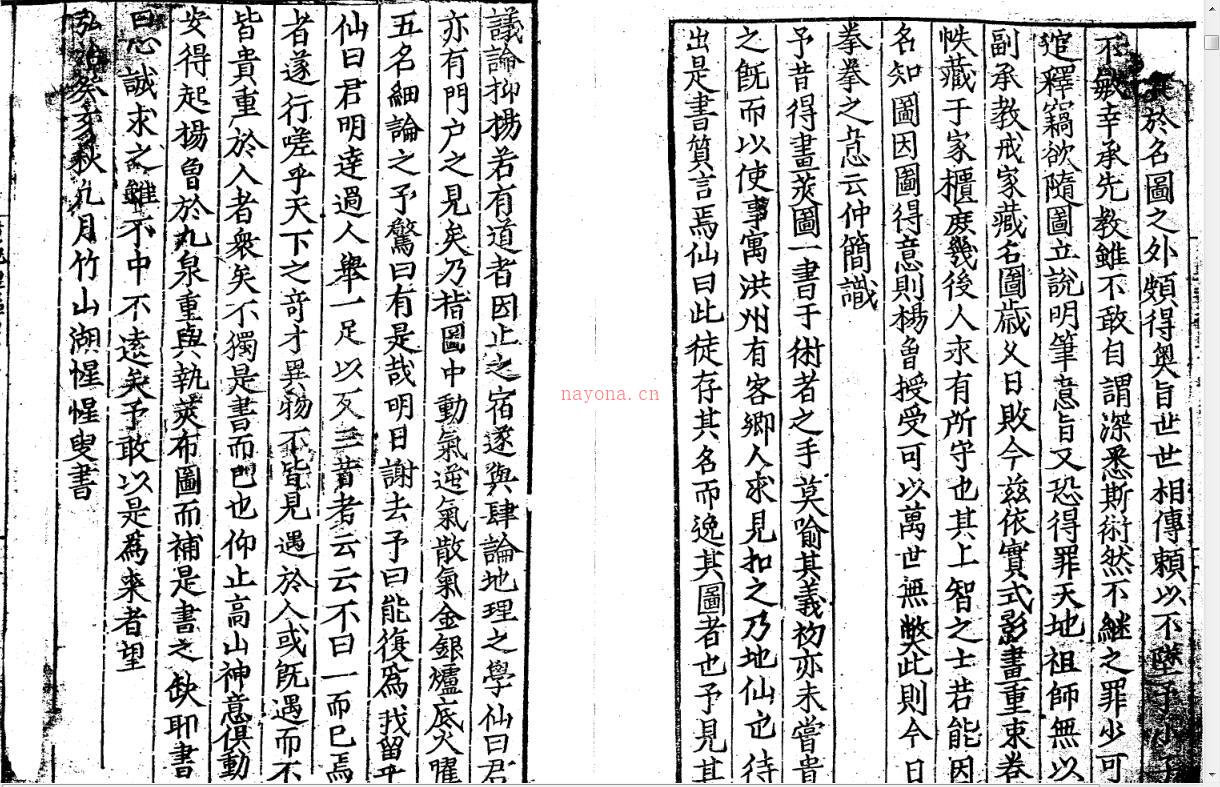 於名圖之外頗得奧旨世世相傳賴以不墜予小子
不敏幸承先教雖不敢自謂深悉斯術然不継之罪少可
逭釋竊欲隨圖立說明筆意旨又恐得罪天地祖師無以
副承教戒家藏名圖歲乆日敗今兹依實式影畫重束卷
帙藏于家櫃庻幾後人永有所守也其上智之士若能因
名知圖因圖得意則楊曾授受可以萬世無弊此則今日
拳拳之意云仲簡識
予昔得畫莢圖一書于術者之手莫喻其義初亦未嘗貴
之旣而以使事寓洪州有客鄉人求見扣之乃地仙也待
出是書質言焉仙曰此徒存其名而逸其圖者也予見其
議論抑揚若有道者因止之宿遂與肆論地理之學仙曰君
亦有門户之見矣乃指圖中動氣逆氣散氣金銀爐底火曜
五名細論之予驚曰有是哉明日謝去予曰能復為我留乎
仙曰君明逹過人舉一足以反三昔者云云不曰一而已焉
者遂行嗟乎天下之竒才異物不皆見遇於人或旣遇而不
皆貴重於人者衆矣不獨是書而已也仰止高山神意俱動
安得起楊曾於九泉重與執莢布圖而補是書之缺耶書
曰心誠求之雖不中不遠矣予敢以是為来者望
弘治癸亥秋九月竹山湖惺惺叟書
nayona.cn